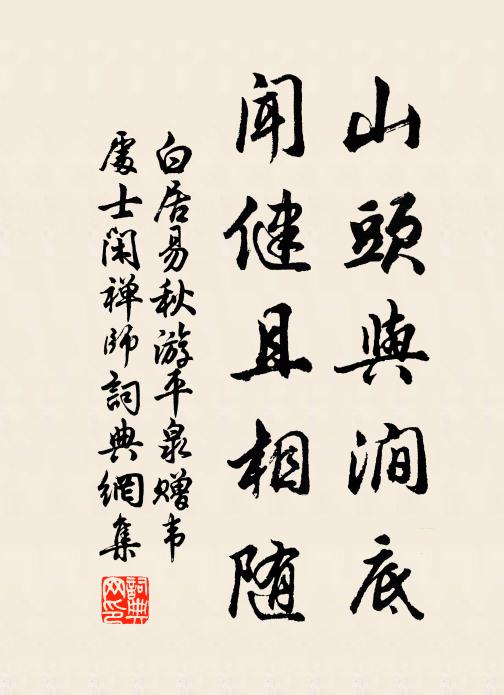 山頭與澗底
聞健且相随
白居易秋游平泉赠韦
處士閑禅師詞典網集
詞典
网印